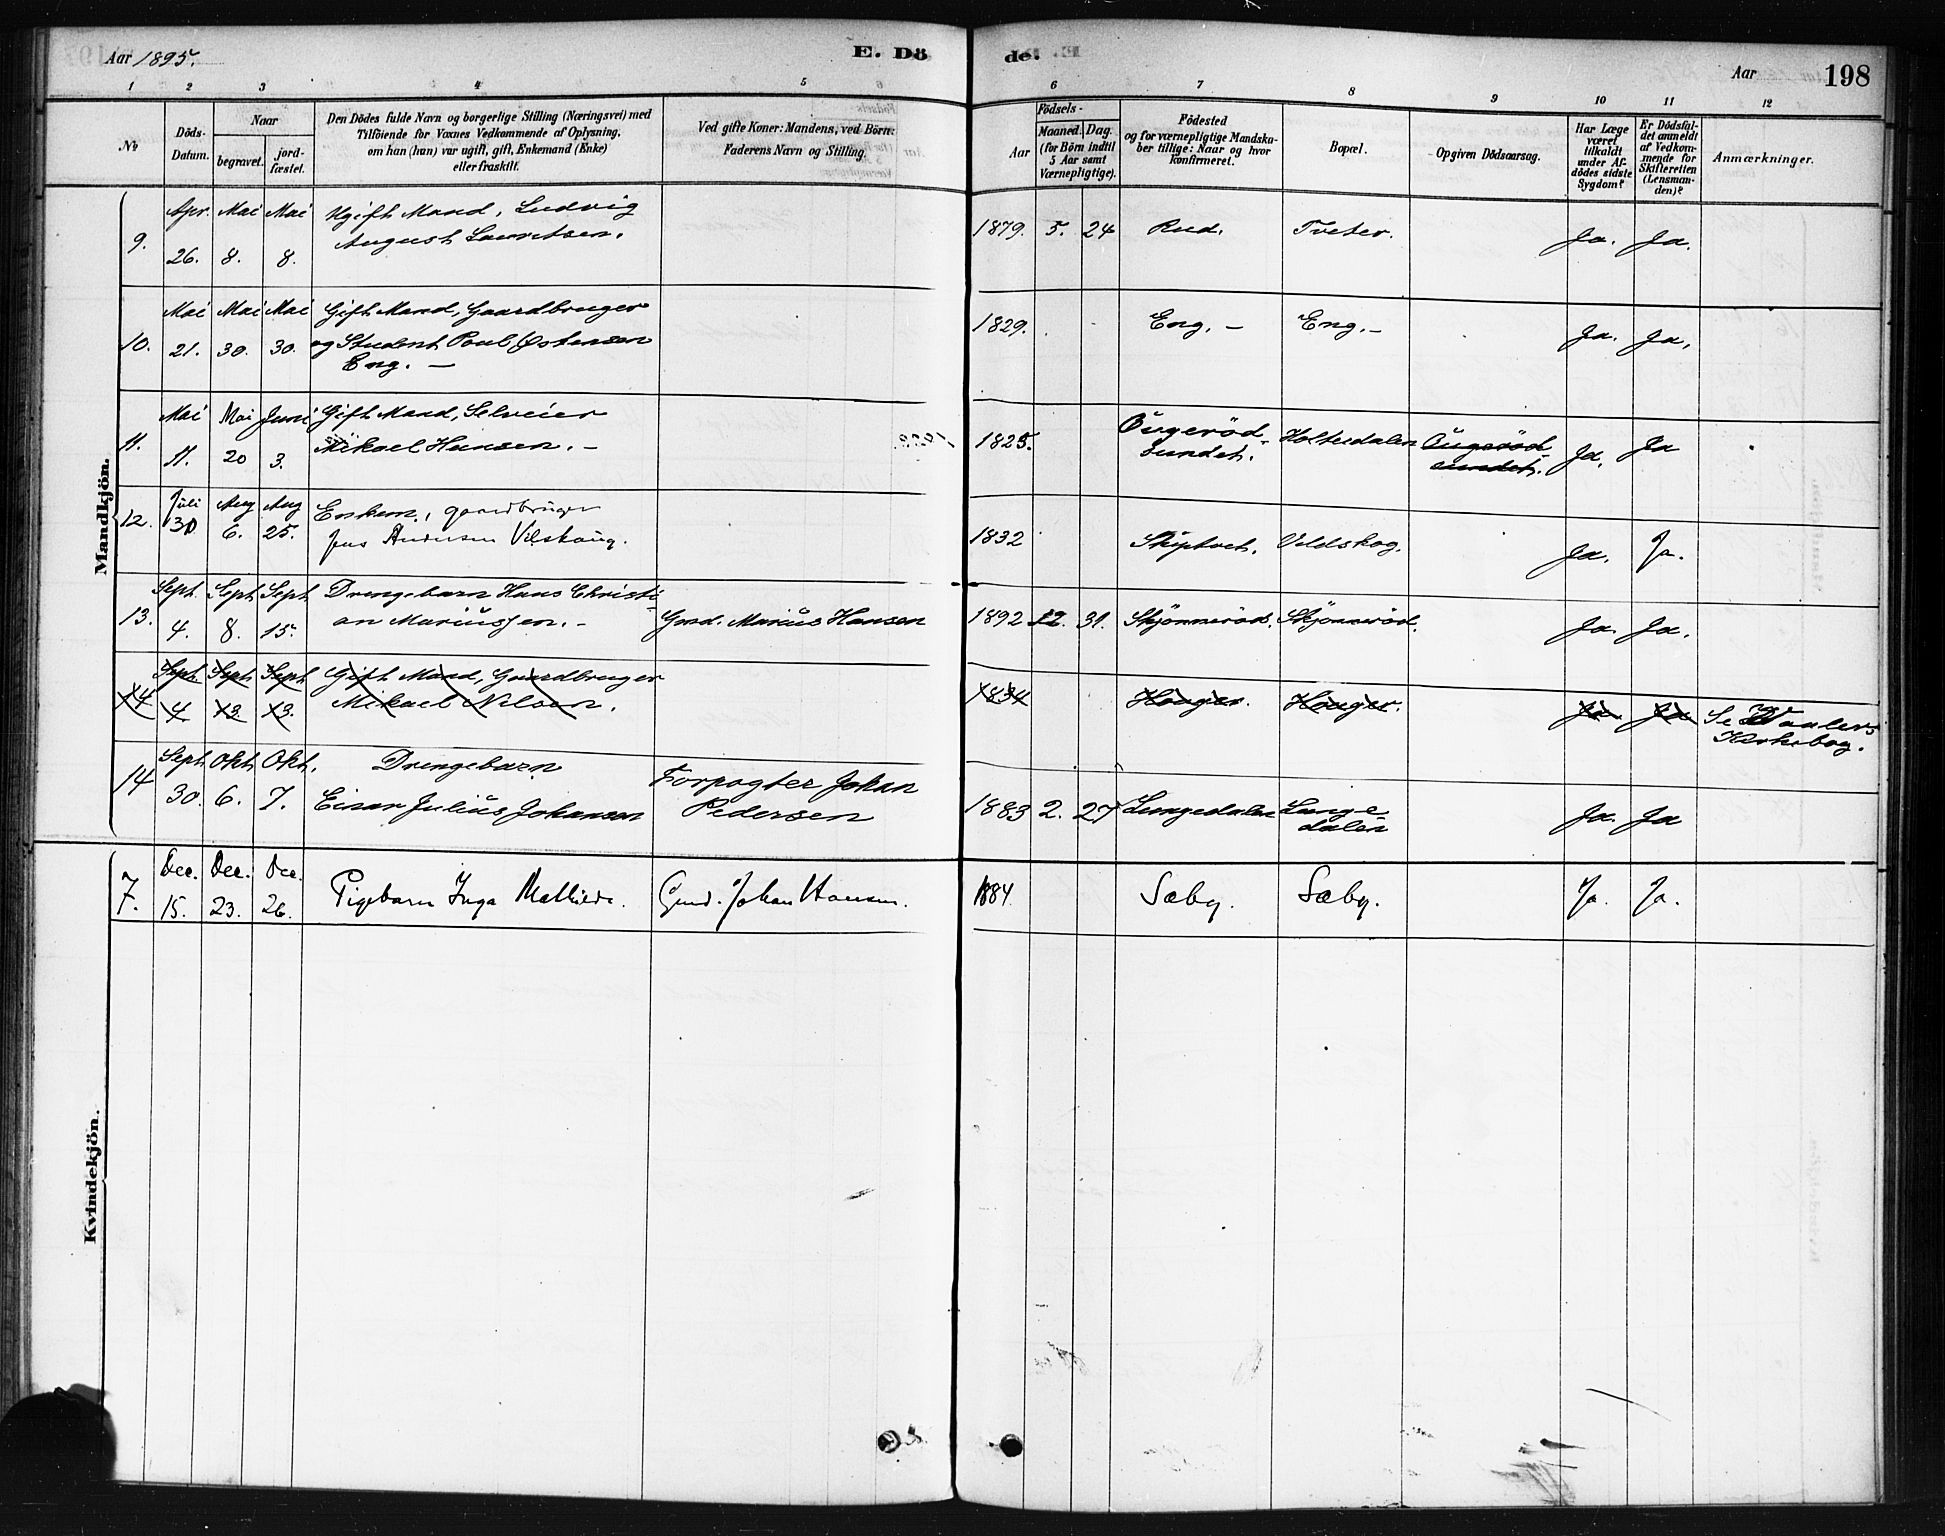 Aar 1895.
E. Dö
de.
Aar
198
1 2 3 4 5 6 7 8 9 10 11 12
No
Döds-Datum.
Naar
begravet.
jord-fæstet.
Den Dödes fulde Navn og borgerlige Stilling (Næringsvei) med
Tilföiende for Voxnes Vedkommende af Oplysning,
om han (hun) var ugift, gift, Enkemand (Enke)
eller fraskilt.
Ved gifte Koner: Mandens, ved Börn:
Faderens Navn og Stilling.
Födsels-
Aar
Maaned. Dag.
(for Börn indtil
5 Aar samt
Værnepligtige).
Födested
og for værnepligtige Mandska-
ber tillige: Naar og hvor
konfirmeret.
Bopæl.
Opgiven Dödsaarsag.
Har Læge
været
tilkaldt
under Af-
dödes sidste
Sygdom?
Er Dödsfal-
det anmeldt
af Vedkom-
mende for
Skifteretten
(Lensman-
den)?
Anmærkninger.
Mandkjön.
Apr. Mai Mai Ugift Mand, Ludvig
9. 26. 8. 8. August Lauritsen. 1879. 5. 24 Rud. Tveter. Ja. Ja.
Mai Mai Mai Gift Mand, Gaardbruger
10. 21. 30. 30. og Student Poul Østensen 1829. Eng. – Eng. – Ja. Ja.
Eng. –
Mai Mai Juni Gift Mand, Selveier
11. 11. 20 3. Mikael Hansen. – 1825. Holtedalen Ja. Ja
Juli Aug Aug Enkem., gaardbruger
12. 30 6. 25. Jens Andersen Vilskoug. 1832 Skiptvet. Vildskog. Ja. Ja.
Sept. Sept. Sept. Drengebarn Hans Christi-
13. 4. 8. 15. an Mariussen. – Gmd. Marius Hansen 1892 12. 31. Skjønnerød. Skjønnerød. Ja. Ja.
Sept. Sept. Sept. Gift Mand, Gaardbruger
14 4 13. 13. Mikael Nilsen. 1834 Hauger. Hauger. Ja. Ja Se Vaaler
Kirkebog.
Sept. Okt. Okt. Drengebarn Forpagter Johan
14 30. 6. 7. Einar Julius Johansen Pedersen 1883 2. 27 Lungedalen Lunge
dalen Ja. Ja
Kvindekjön.
Dec. Dec. Dec.
7. 15. 23. 26. Pigebarn Inga Mathilde. Gmd. Johan Hansen. 1884. Sæby. Sæby. Ja. Ja.